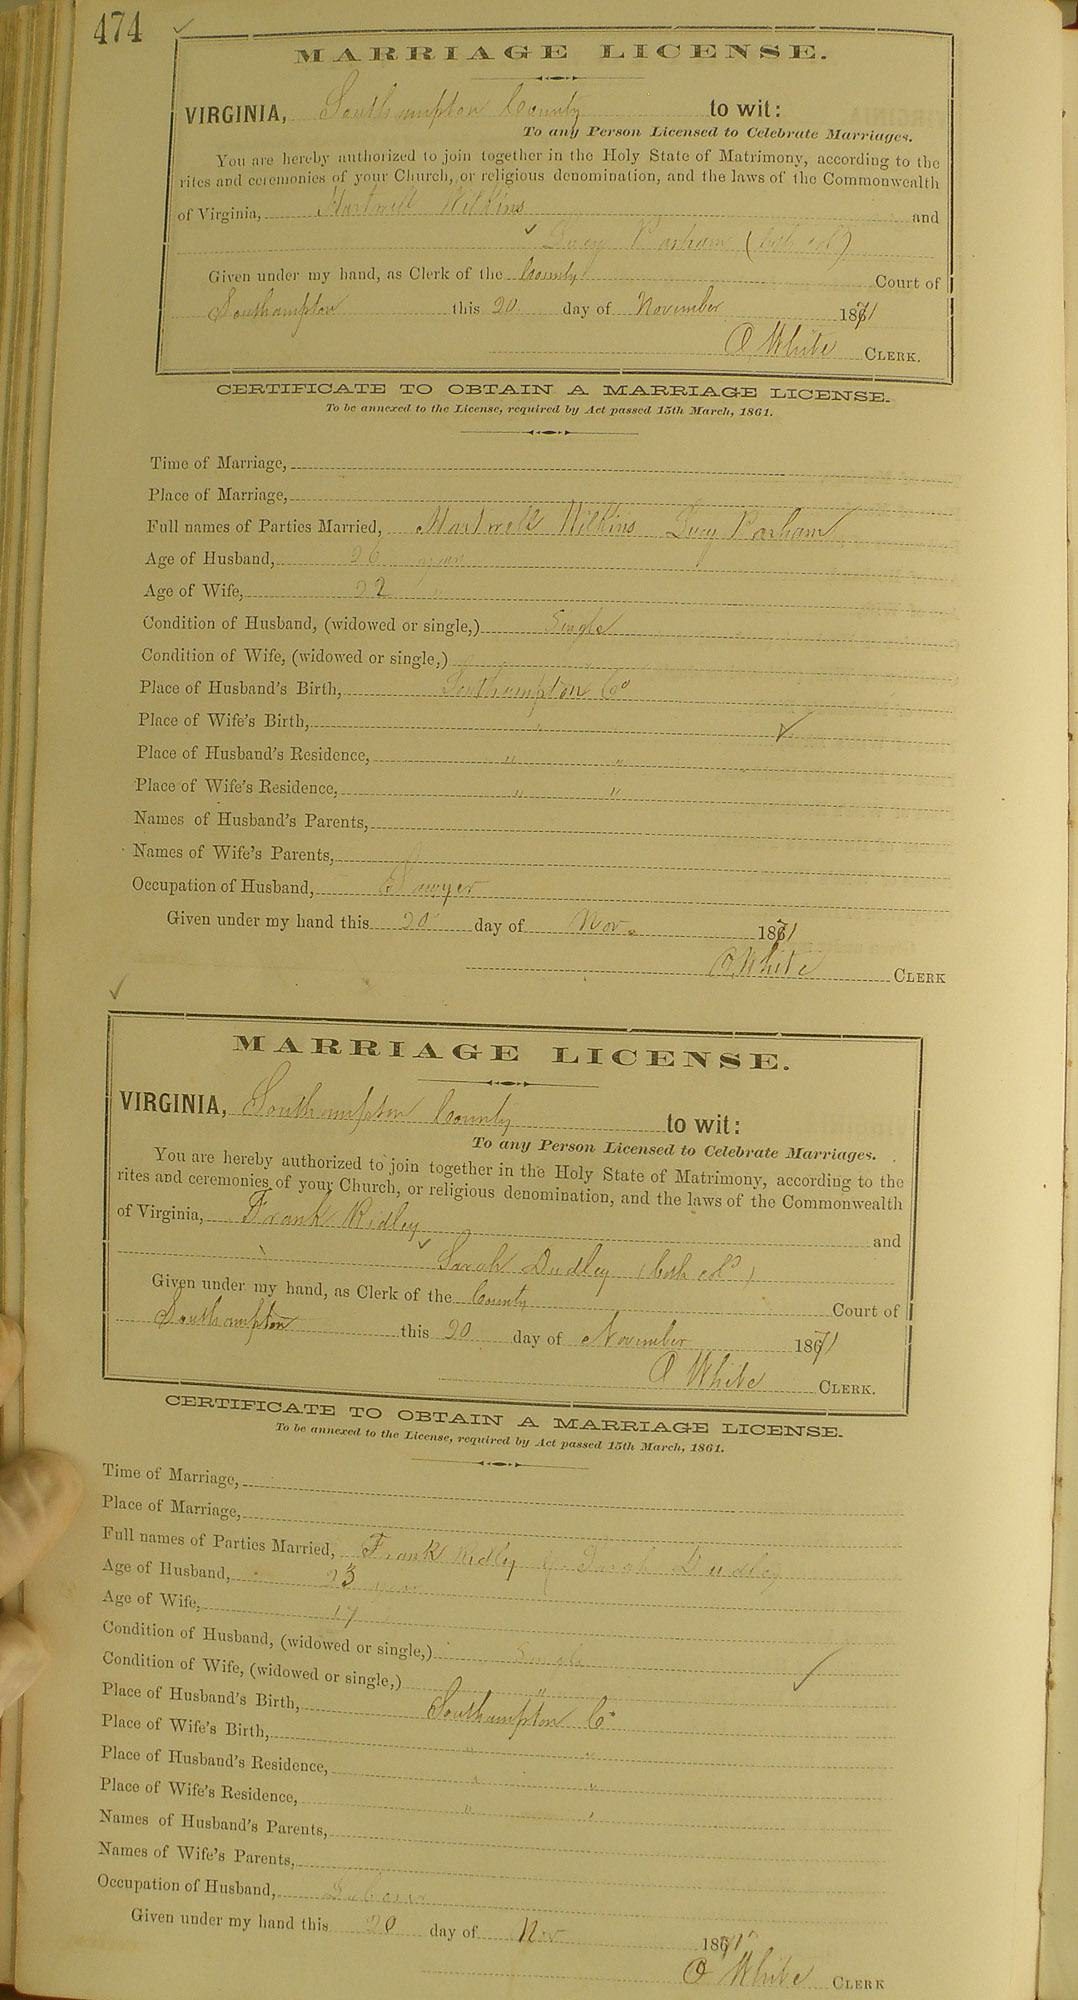 474
MARRIAGE LICENSE.
VIRGINIA, Southampton County to wit:
To any Person Licensed to Celebrate Marriages.
You are hereby authorized to join together in the Holy State of Matrimony, according to the
rites and ceremonies of your Church, or religious denomination, and the laws of the Commonwealth
of Virginia, Hartwell Wilkins and
Lucy Parham (both cold)
Given under my hand, as Clerk of the County Court of
Southampton this 20 day of November 1871
O White CLERK.
CERTIFICATE TO OBTAIN A MARRIAGE LICENSE.
To be annexed to the License, required by Act passed 15th March, 1861.
Time of Marriage,
Place of Marriage,
Full names of Parties Married, Hartwell Wilkins Lucy Parham
Age of Husband, 26 years
Age of Wife, 22 "
Condition of Husband, (widowed or single,) Single
Condition of Wife, (widowed or single,)
Place of Husband's Birth, Southampton Co
Place of Wife's Birth, "
Place of Husband's Residence, " "
Place of Wife's Residence, " "
Names of Husband's Parents,
Names of Wife's Parents,
Occupation of Husband, Sawyer
Given under my hand this 20 day of Nov. 1871
O White CLERK
MARRIAGE LICENSE.
VIRGINIA, Southampton County to wit:
To any Person Licensed to Celebrate Marriages.
You are hereby authorized to join together in the Holy State of Matrimony, according to the
rites and ceremonies of your Church, or religious denomination, and the laws of the Commonwealth
of Virginia, Frank Ridley and
Sarah Dudley (both cold)
Given under my hand, as Clerk of the County Court of
Southampton this 20 day of November 1871
O White CLERK.
CERTIFICATE TO OBTAIN A MARRIAGE LICENSE.
To be annexed to the License, required by Act passed 15th March, 1861.
Time of Marriage,
Place of Marriage,
Full names of Parties Married, Frank Ridley & Sarah Dudley
Age of Husband, 23 years
Age of Wife, 17
Condition of Husband, (widowed or single,) Single
Condition of Wife, (widowed or single,) "
Place of Husband's Birth, Southampton Co
Place of Wife's Birth, " "
Place of Husband's Residence, " "
Place of Wife's Residence, " "
Names of Husband's Parents,
Names of Wife's Parents,
Occupation of Husband,
Given under my hand this 20 day of Nov 1871
O White CLERK